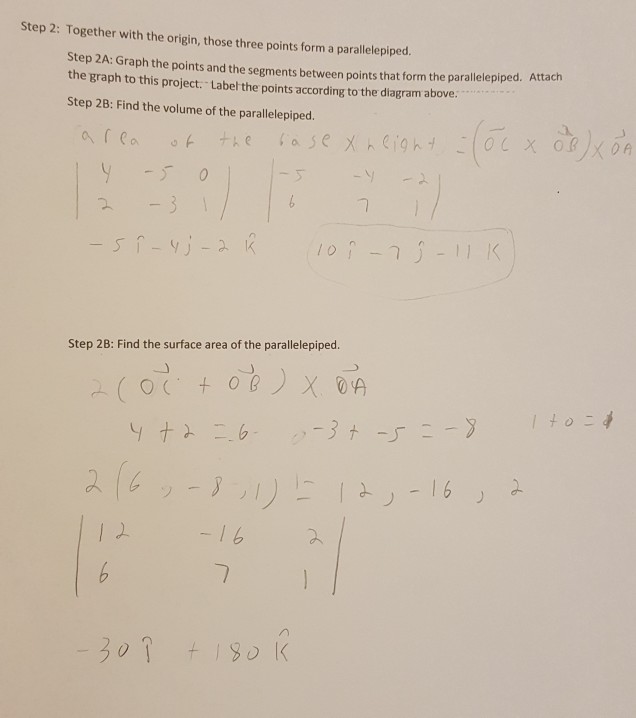 Step 2: Together with the origin, those three points form a parallelepiped.
Step 2A: Graph the points and the segments between points that form the parallelepiped. Attach
the graph to this project. Label the points according to the diagram above.
Step 2B: Find the volume of the parallelepiped.
area of the base x height = (OC x OB) x OA
| 4 -5 0 | | -5 -4 -2 |
| 2 -3 1 | | 6 7 1 |
-5 î - 4 j - 2 k̂ 10 î - 7 ĵ - 11 K
Step 2B: Find the surface area of the parallelepiped.
2 ( OC + OB ) x OA
4 + 2 = 6 -3 + -5 = -8 1 + 0 = 1
2 (6, -8, 1) = 12, -16, 2
| 12 -16 2 |
| 6 7 1 |
-30 î + 180 k̂